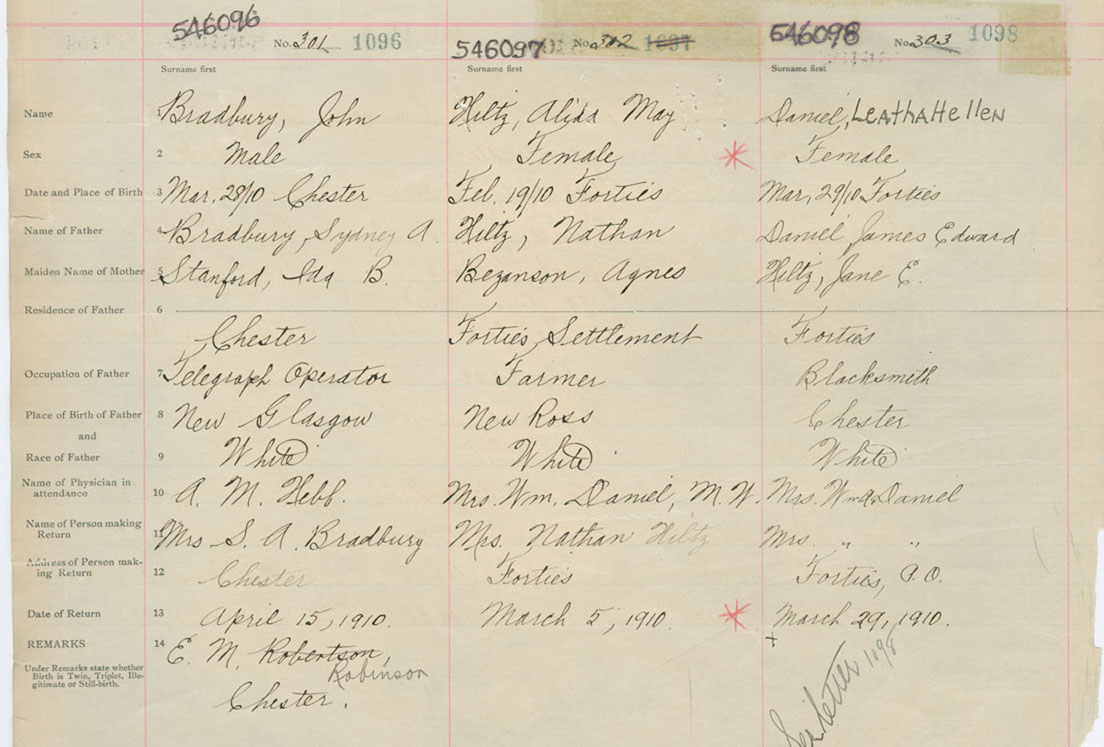 546096 No. 301 1096 546097 No. 302 1097 546098 No. 303 1098
Surname first Surname first Surname first
Name 1 Bradbury, John Hiltz, Alida May Daniel, Leatha Hellen
Sex 2 Male Female Female
Date and Place of Birth 3 Mar. 28/10 Chester Feb. 19/10 Forties Mar, 29/10 Forties
Name of Father 4 Bradbury, Sydney A. Hiltz, Nathan Daniel, James Edward
Maiden Name of Mother 5 Stanford, Ida B. Bezanson, Agnes Hiltz, Jane E.
Residence of Father 6
Chester Forties Settlement Forties
Occupation of Father 7 Telegraph Operator Farmer Blacksmith
Place of Birth of Father 8 New Glasgow New Ross Chester
and
Race of Father 9 White White White
Name of Physician in
attendance 10 A. M. Hebb. Mrs. Wm. Daniel, M.W. Mrs. Wm A. Daniel
Name of Person making
Return 11 Mrs S. A. Bradbury Mrs. Nathan Hiltz Mrs. " "
Address of Person mak-
ing Return 12 Chester Forties Forties, P.O.
Date of Return 13 April 15, 1910. March 5, 1910. March 29, 1910.
REMARKS 14 E. M. Robertson
Robinson
Under Remarks state whether
Birth is Twin, Triplet, Ille-
gitimate or Still-birth.
Chester.
letter 1098